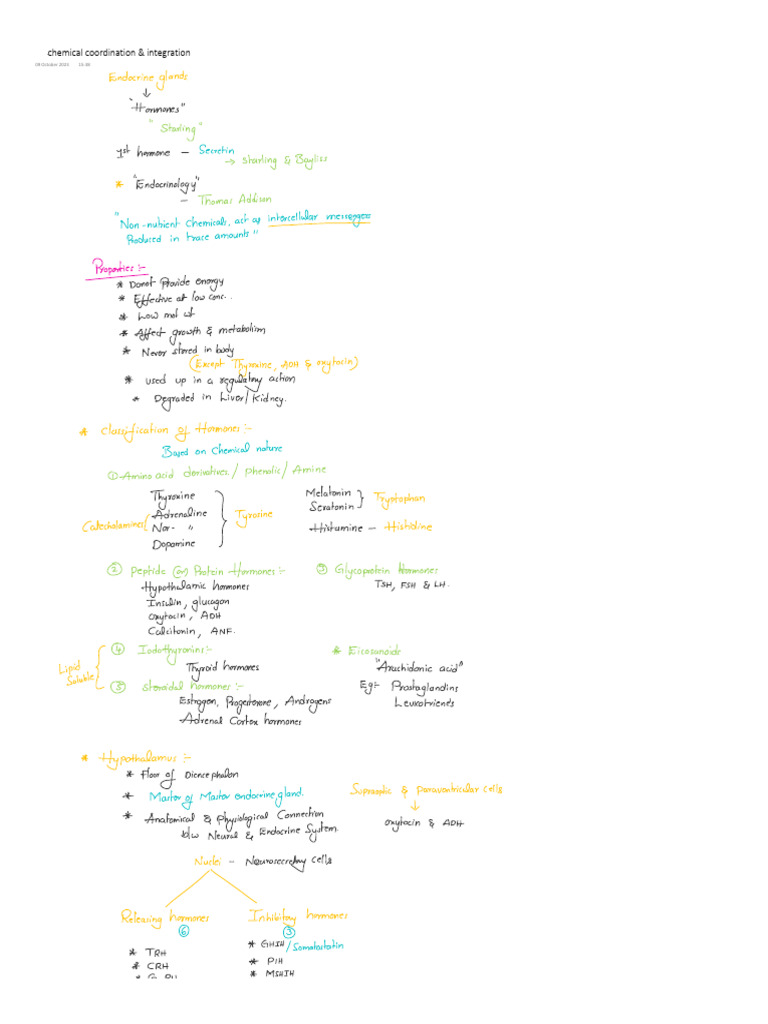 chemical coordination & integration
09 October 2023 15:38
Endocrine glands
↓
"Hormones"
"Starling"
1st hormone – Secretin
→ Starling & Bayliss
* "Endocrinology"
– Thomas Addison
"Non-nutrient Chemicals, act as intercellular messenges
Produced in trace amounts"
Properties :-
* Donot Provide energy
* Effective at low conc..
* Low mol wt
* Affect growth & metabolism
* Never stored in body
(Except Thyroxine, ADH & oxytocin)
* used up in a regulatory action
* Degraded in Liver/Kidney.
* Classification of Hormones:-
Based on Chemical nature
① Amino acid derivatives / phenolic / Amine
Thyroxine
Adrenaline
Nor- "
Dopamine
Catecholamines
Tyrosine
Melatonin
Seratonin
Tryptophan
Histamine – Histidine
② Peptide (or) Protein Hormones:-
Hypothalamic hormones
Insulin, glucagon
Oxytocin, ADH
Calcitonin, ANF.
③ Glycoprotein Hormones
TSH, FSH & LH.
Lipid Soluble
④ Iodothyronins:-
Thyroid hormones
⑤ Steroidal hormones:-
Estrogen, Progesterone, Androgens
Adrenal Cortex hormones
* Eicosanoids
"Arachidonic acid"
Eg:- Prostaglandins
Leukotriends
* Hypothalamus :-
* Floor of Diencephalon
* Master of Master endocrine gland.
* Anatomical & Physiological Connection
b/w Neural & Endocrine System.
Supraoptic & paraventricular cells
↓
oxytocin & ADH
Nuclei – Neurosecretory cells
Releasing hormones
⑥
* TRH
* CRH
Inhibitory hormones
③
* GHIH / Somatostatin
* PIH
* MSHIH